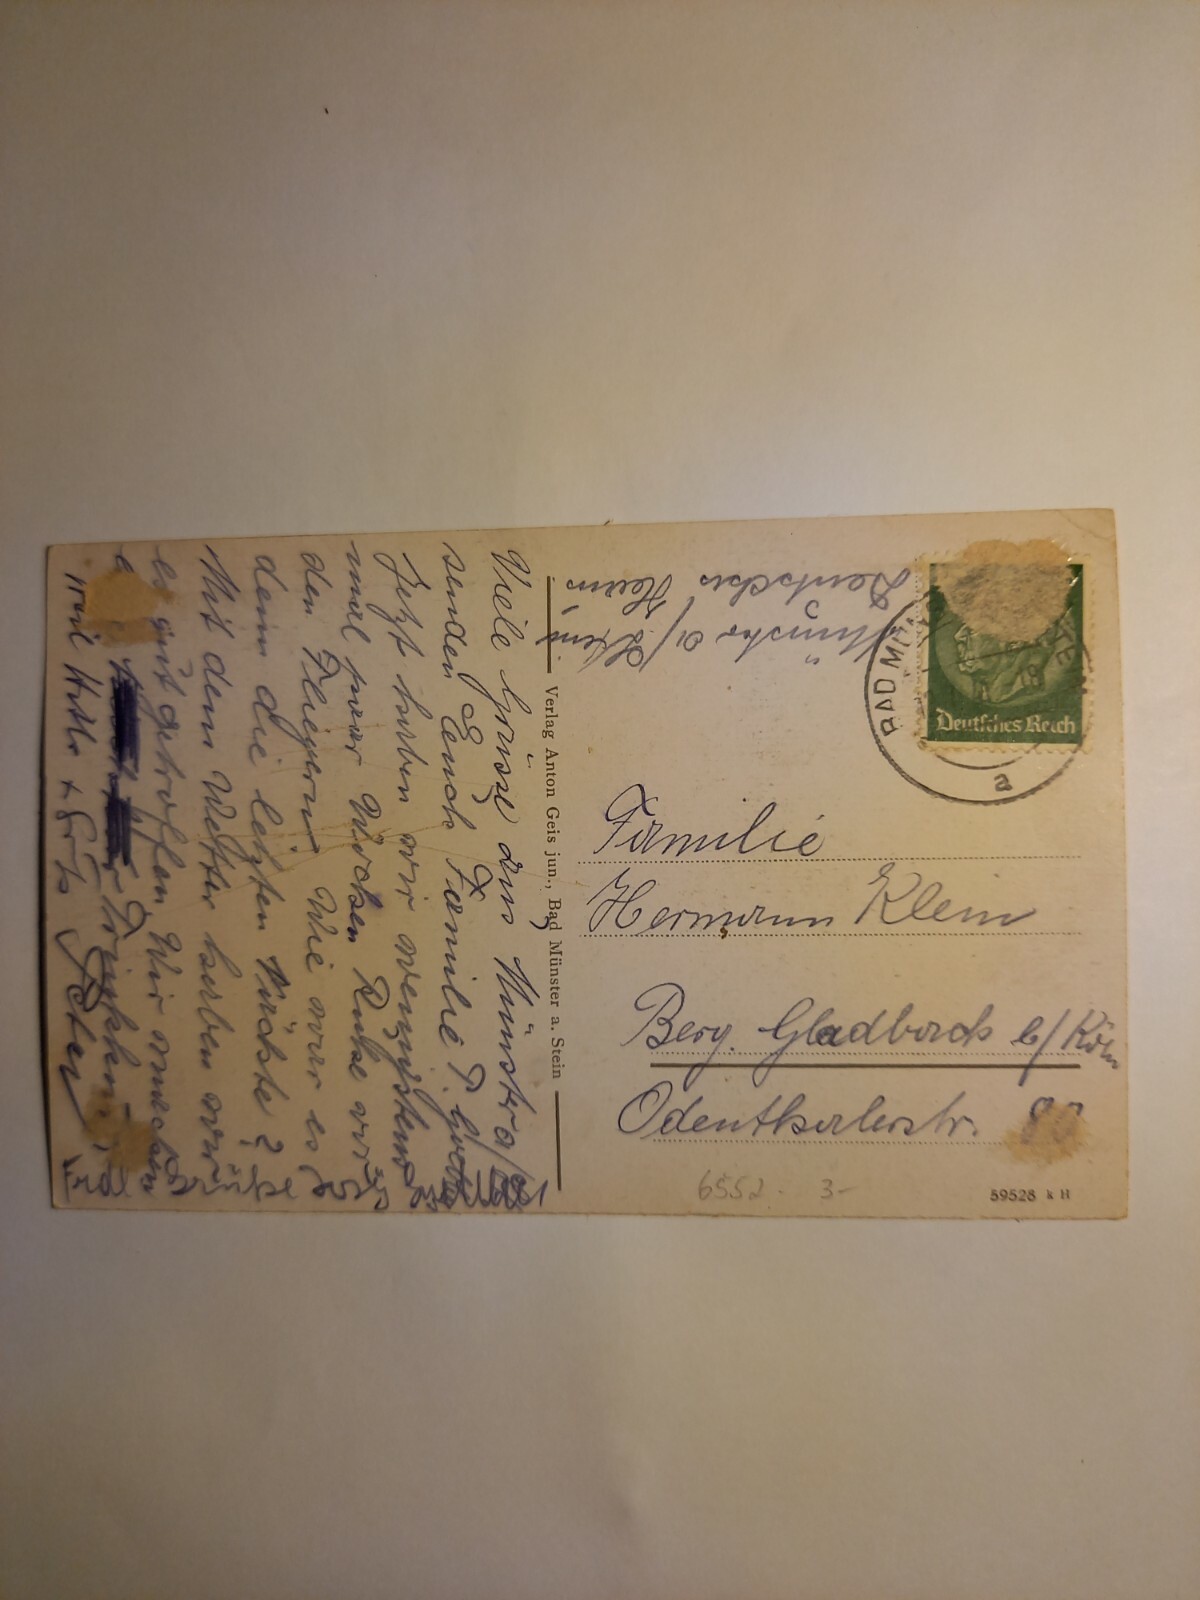 Viele Grüsse aus Münster a/
senden Euch Familie P.
Jetzt haben wir wenigstens
mal paar Wochen Ruhe vor
den Fliegern Wie war es
denn die letzten Nächte?
Mit dem Wetter haben wir
es gut getroffen. Wir machen
Trinkkur,
Heil Hitler + Gruß Peter
Verlag Anton Geis jun., Bad Münster a. Stein
Münster a/ Stein
Deutsches Haus
BAD MÜN
a
Deutsches Reich
Familie
Hermann Klein
Berg. Gladbach b/Köln
Odenthalerstr.
6552. 3-
59528 k H